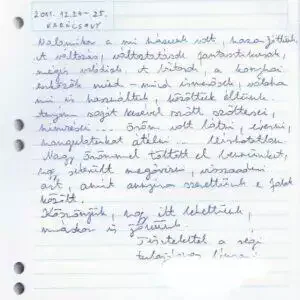 2011. 12. 24 - 25.
KARÁCSONY
Valamikor a mi házunk volt, hazajöttünk.
A változás, változtatások fantasztikusak,
mégis valódiak. A bútorok, a konyhai
eszközök mind - mind ismerősek, valaha
mi is használtuk, közöttük éltünk.
Anyám saját kezével szőtt szőttesei,
hímzései ... öröm volt látni, érezni,
hangulatukat átélni ... leírhatatlan.
Nagy örömmel töltött el bennünket,
hogy sikerült megőrizni, visszaadni
azt, amit annyira szerettünk e falak
között.
Köszönjük, hogy itt lehettünk,
máskor is jövünk.
Tisztelettel a régi
tulajdonos